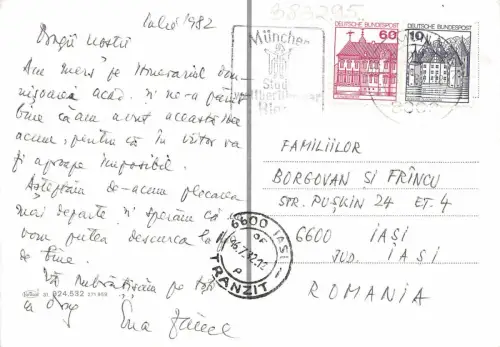 Iulie 1982
Dragii noștri
Am mers pe itinerariul
acad. și ne-a părut
bine că am avut această
acum, pentru că în viitor va
fi aproape imposibil.
Așteptăm de-acum plecarea
mai departe și sperăm că
vom putea descurca la
de bine.
Vă îmbrățișăm pe toți
cu drag
383295
München
Stadt
DEUTSCHE BUNDESPOST
60
DEUTSCHE BUNDESPOST
10
FAMILIILOR
BORGOVAN ȘI FRÎNCU
STR. PUȘKIN 24 ET. 4
6600 IAȘI
JUD. IAȘI
ROMANIA
6600 IASI
TRANZIT
01 024.592 271 909